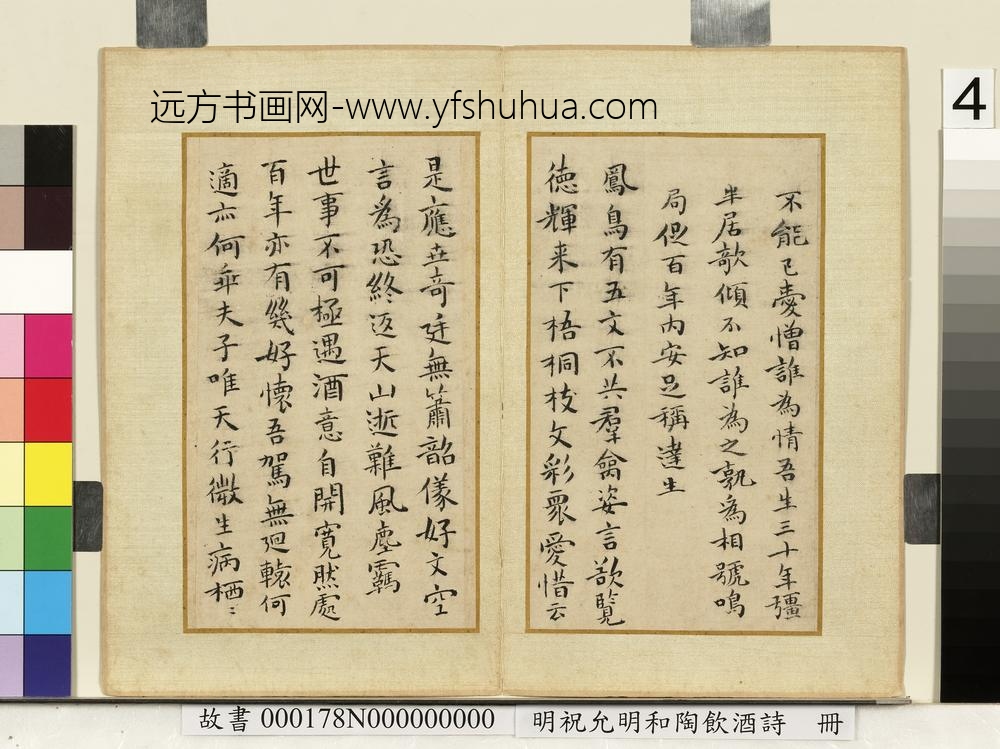 远方书画网-www.yfshuhua.com
4
不能已憂憎誰為情吾生三十年彊
半居欹傾不知誰為之孰為相號鳴
局促百年内安足稱達生
鳳鳥有五文不共羣禽姿言欲覽
徳輝来下梧桐枝文彩眾愛惜云
是應世奇廷無簫韶儀好文空
言為恐終返天山逝難風塵羈
世事不可極遇酒意自開寛然處
百年亦有幾好懷吾駕無迴轅何
適亦何乖夫子唯天行微生病栖〻
故書 000178N000000000
明祝允明和陶飲酒詩 冊